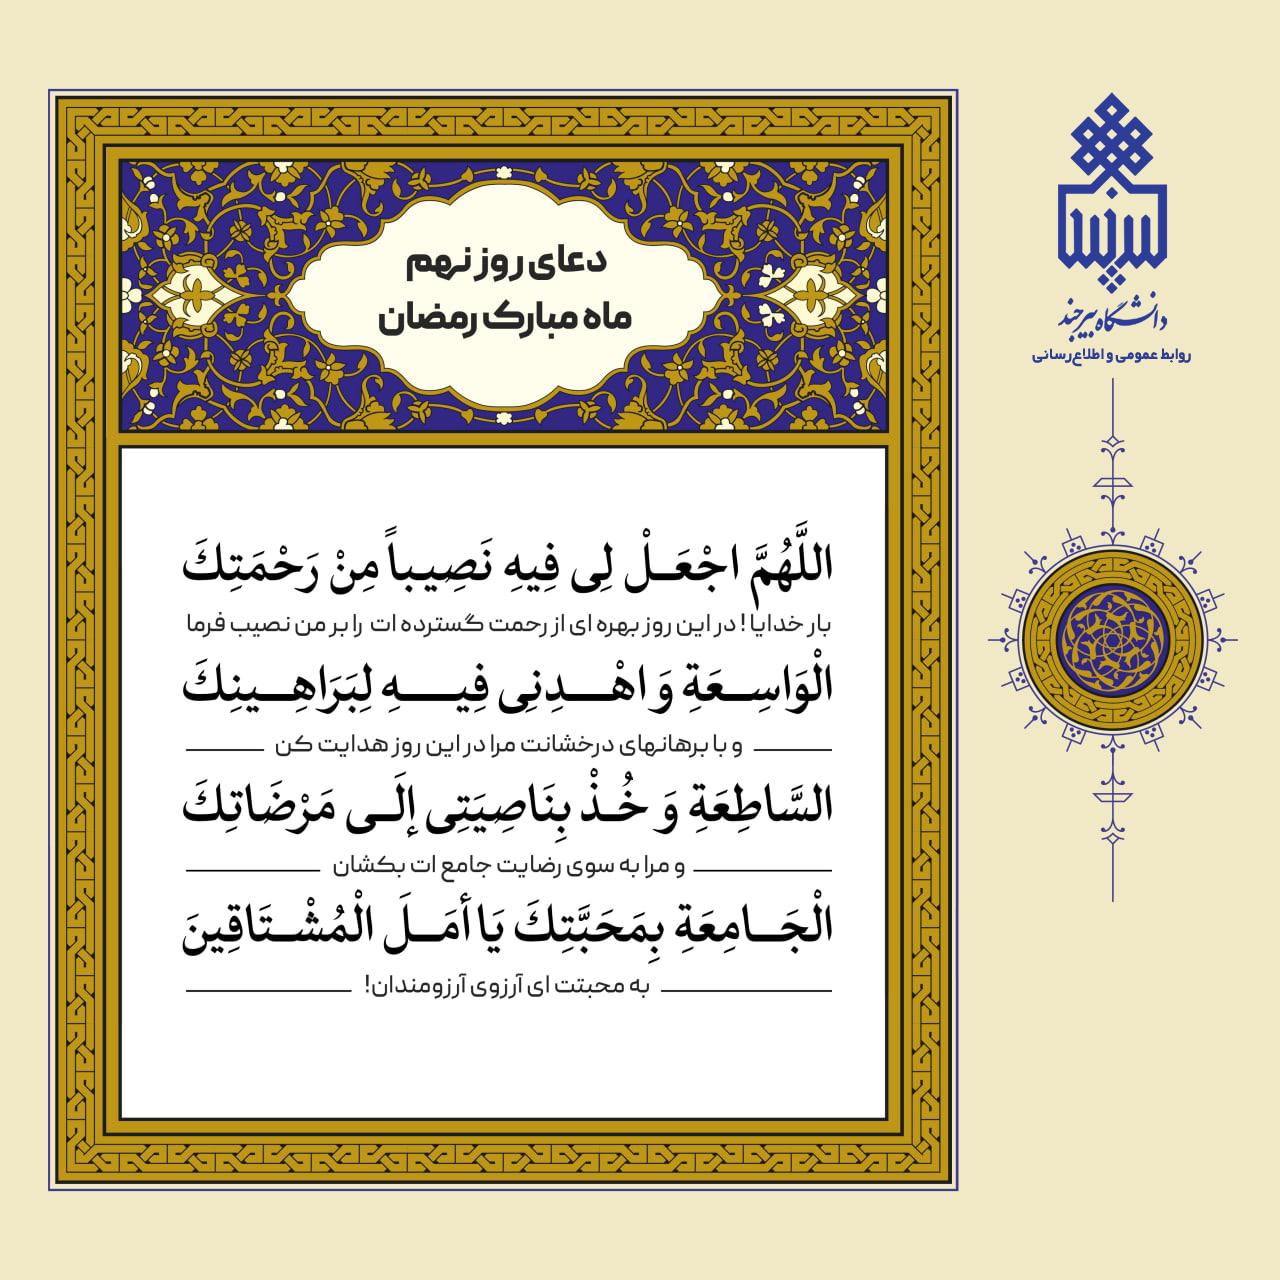 دعای روز نهم
ماه مبارک رمضان
اللَّهُمَّ اجْعَلْ لِی فِیهِ نَصِیباً مِنْ رَحْمَتِكَ
بار خدایا! در این روز بهره ای از رحمت گسترده ات را بر من نصیب فرما
الْوَاسِعَةِ وَ اهْدِنِی فِیهِ لِبَرَاهِینِكَ
و با برهانهای درخشانت مرا در این روز هدایت کن
السَّاطِعَةِ وَ خُذْ بِنَاصِیَتِی إلَی مَرْضَاتِكَ
و مرا به سوی رضایت جامع ات بکشان
الْجَامِعَةِ بِمَحَبَّتِكَ یَا أمَلَ الْمُشْتَاقِینَ
به محبتت ای آرزوی آرزومندان!
دانشگاه بیرجند
روابط عمومی و اطلاع‌رسانی